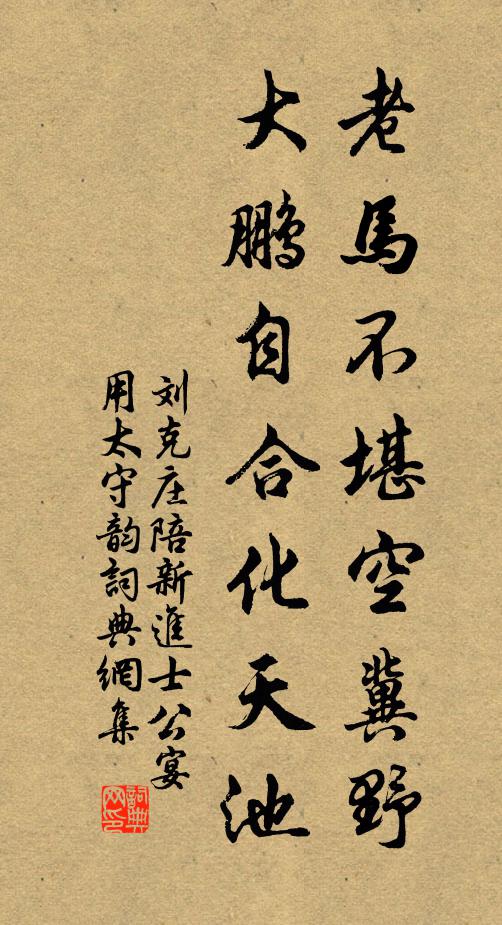 老馬不堪空冀野
大鹏自合化天池
刘克庄陪新進士公宴
用太守韵詞典網集
詞典網印